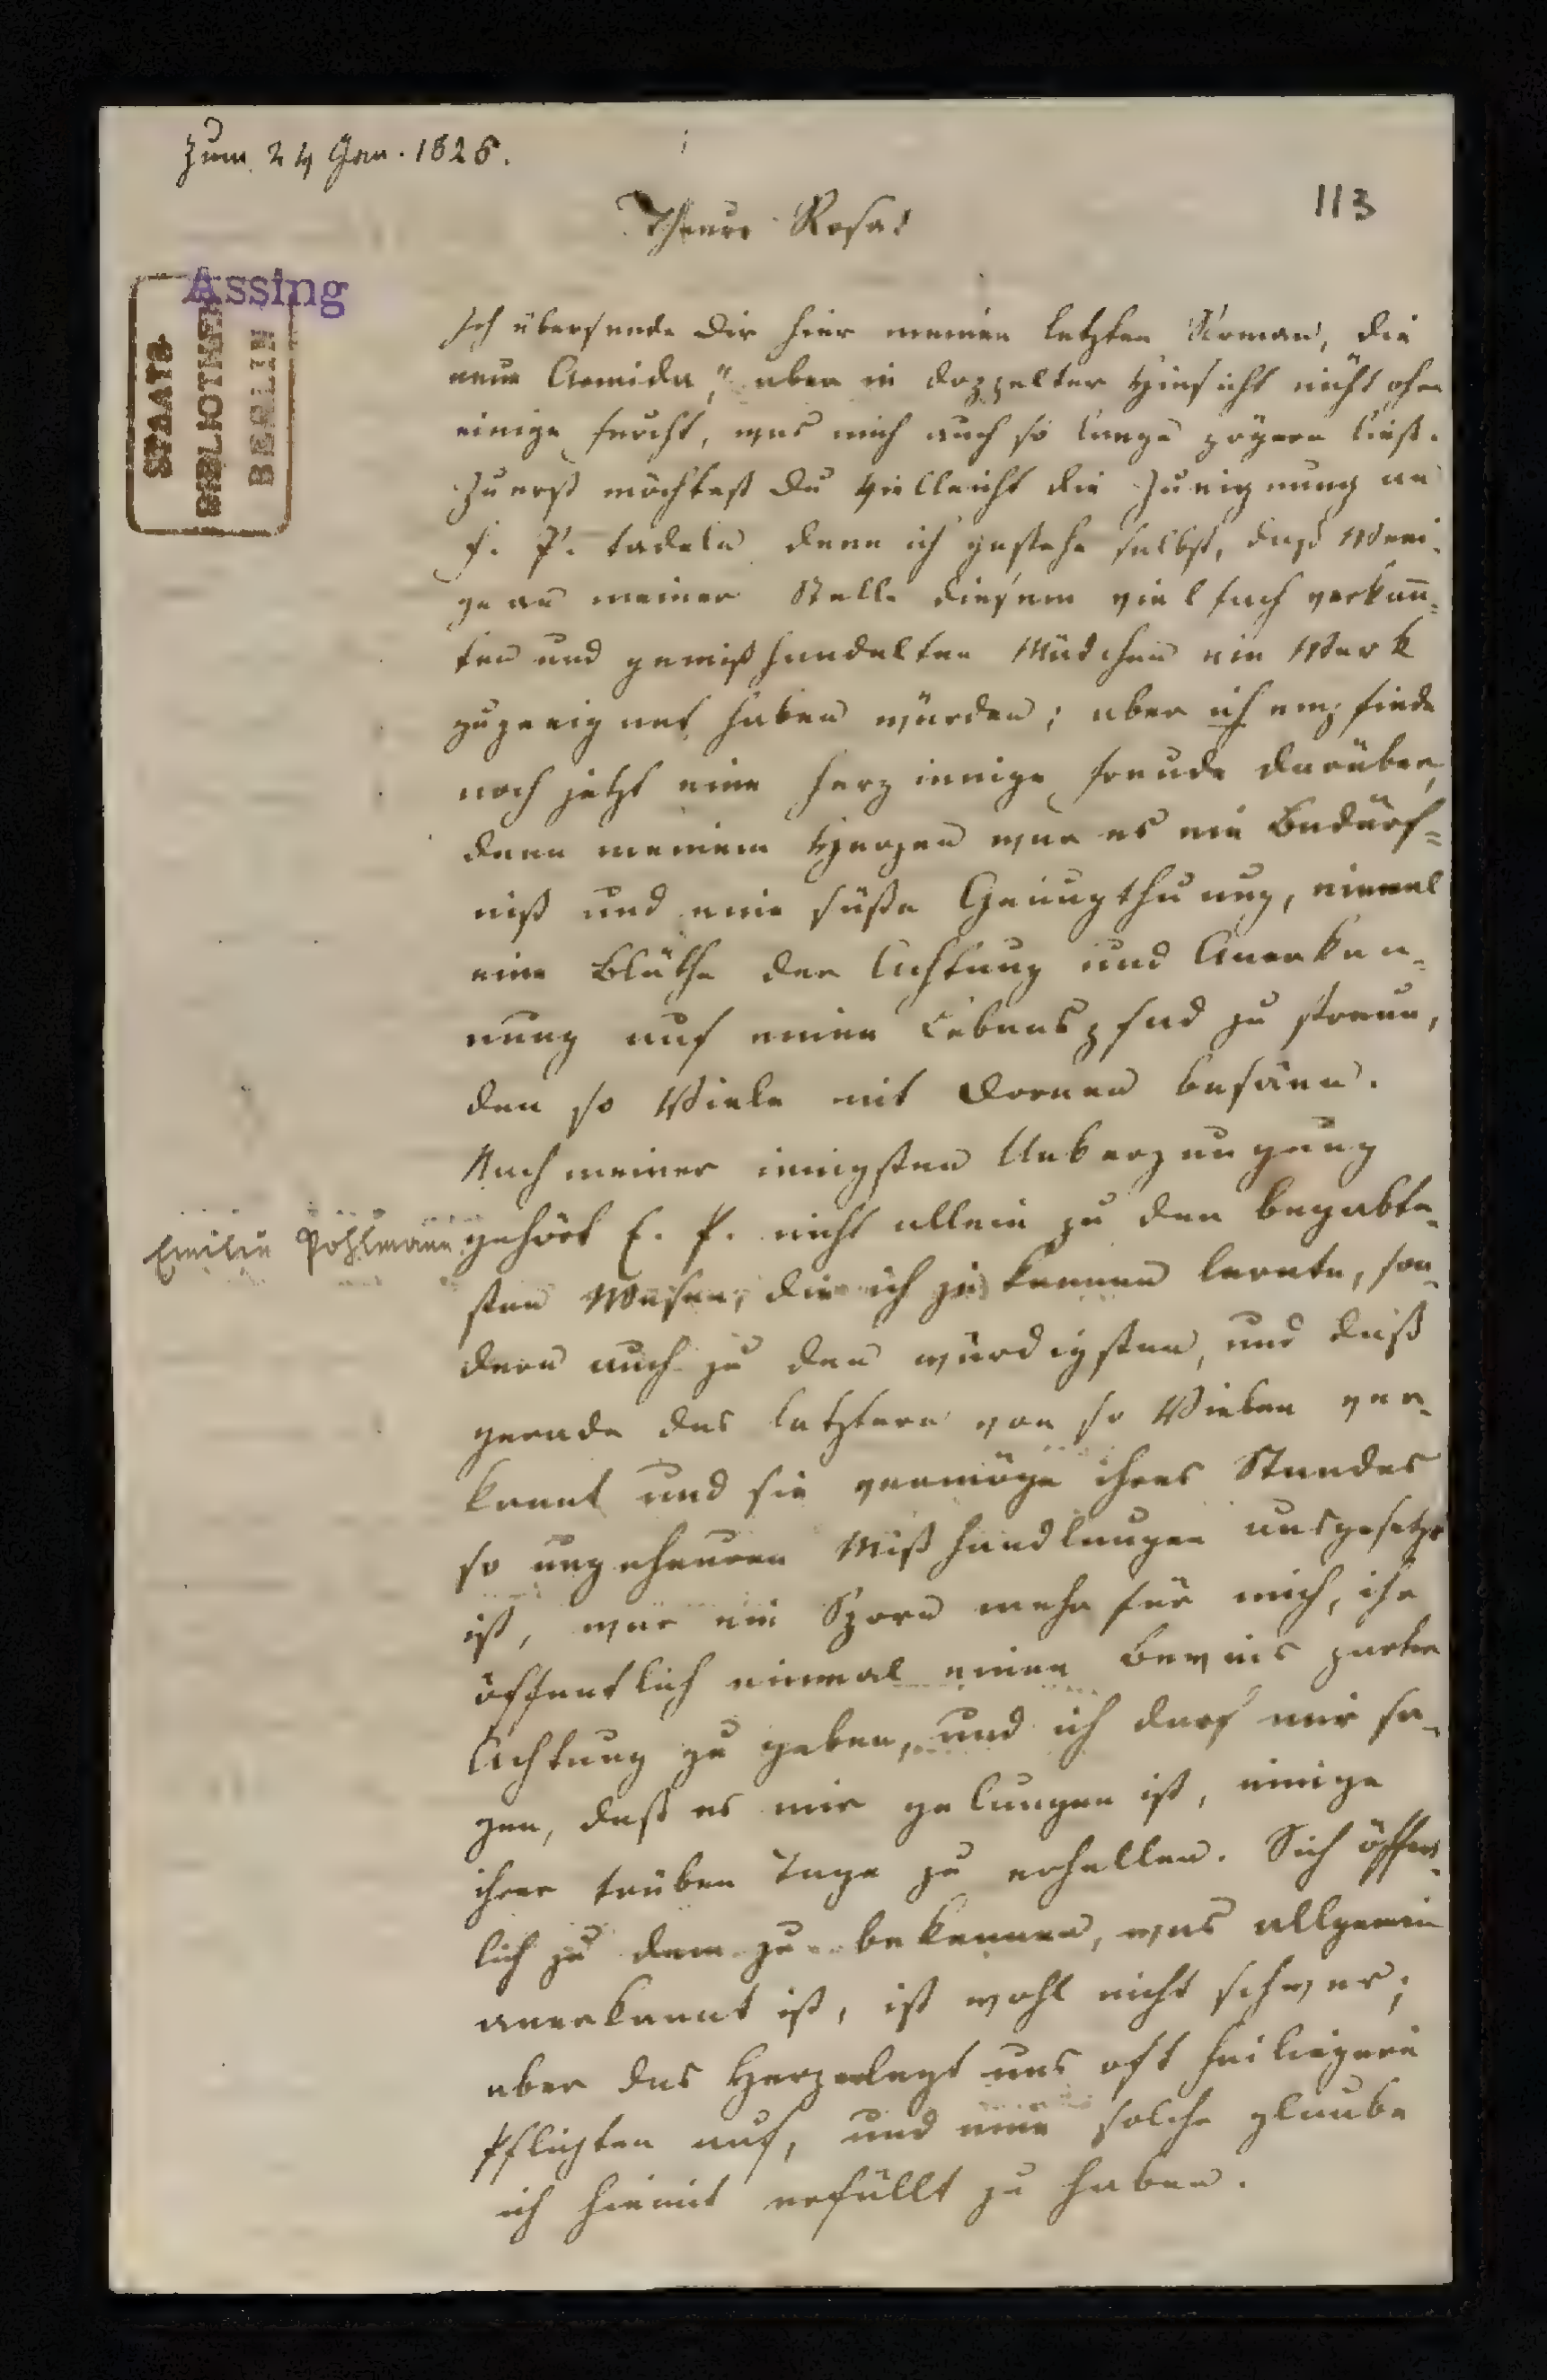 Zum 24 Jan. 1826.
113
Theure Rosa!
Assing
STAATS
BIBLIOTHEK
BERLIN
Ich übersende Dir hier meinen letzten Roman, die
neue Armida," aber in doppelter Hinsicht nicht ohne
einige Furcht, was mich auch so lange zögern ließ.
Zuerst möchtest Du vielleicht die Zueignung an
E. P. tadeln denn ich gestehe selbst, daß Weni-
ge an meiner Stelle diesem vielfach verkan̄-
ten und gemißhandelten Mädchen ein Werk
zugeeignet haben würden; aber ich empfinde
noch jetzt eine herzinnige Freude darüber,
denn meinem Herzen war es ein Bedürf-
niß und eine süße Genugthuung, einmal
eine Blüthe der Achtung und Anerken-
nung auf einen Lebenspfad zu streun,
den so Viele mit Dornen besäen.
Nach meiner innigsten Ueberzeugung
Emilie Pohlmann
gehört E. P. nicht allein zu den begabte-
sten Wesen, die ich je kennen lernte, son-
dern auch zu den würdigsten, und daß
gerade das letztere von so Vielen ver-
kannt und sie vermöge ihres Standes
so ungeheuren Mißhandlungen ausgesetzt
ist, war ein Sporn mehr für mich, ihr
öffentlich einmal einen Beweis zarter
Achtung zu geben, und ich darf mir sa-
gen, daß es mir gelungen ist, einige
ihrer trüben Tage zu erhellen. Sich öffent-
lich zu dem zu bekennen, was allgemein
anerkannt ist, ist wohl nicht schwer;
aber das Herz legt uns oft heiligere
Pflichten auf, und eine solche glaube
ich hiemit erfüllt zu haben.